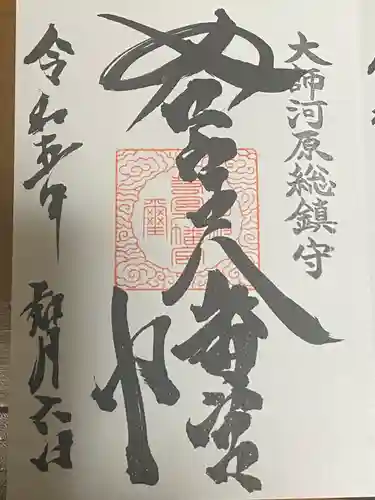 大師河原総鎮守
若宮八幡宮
令和五年
月六日